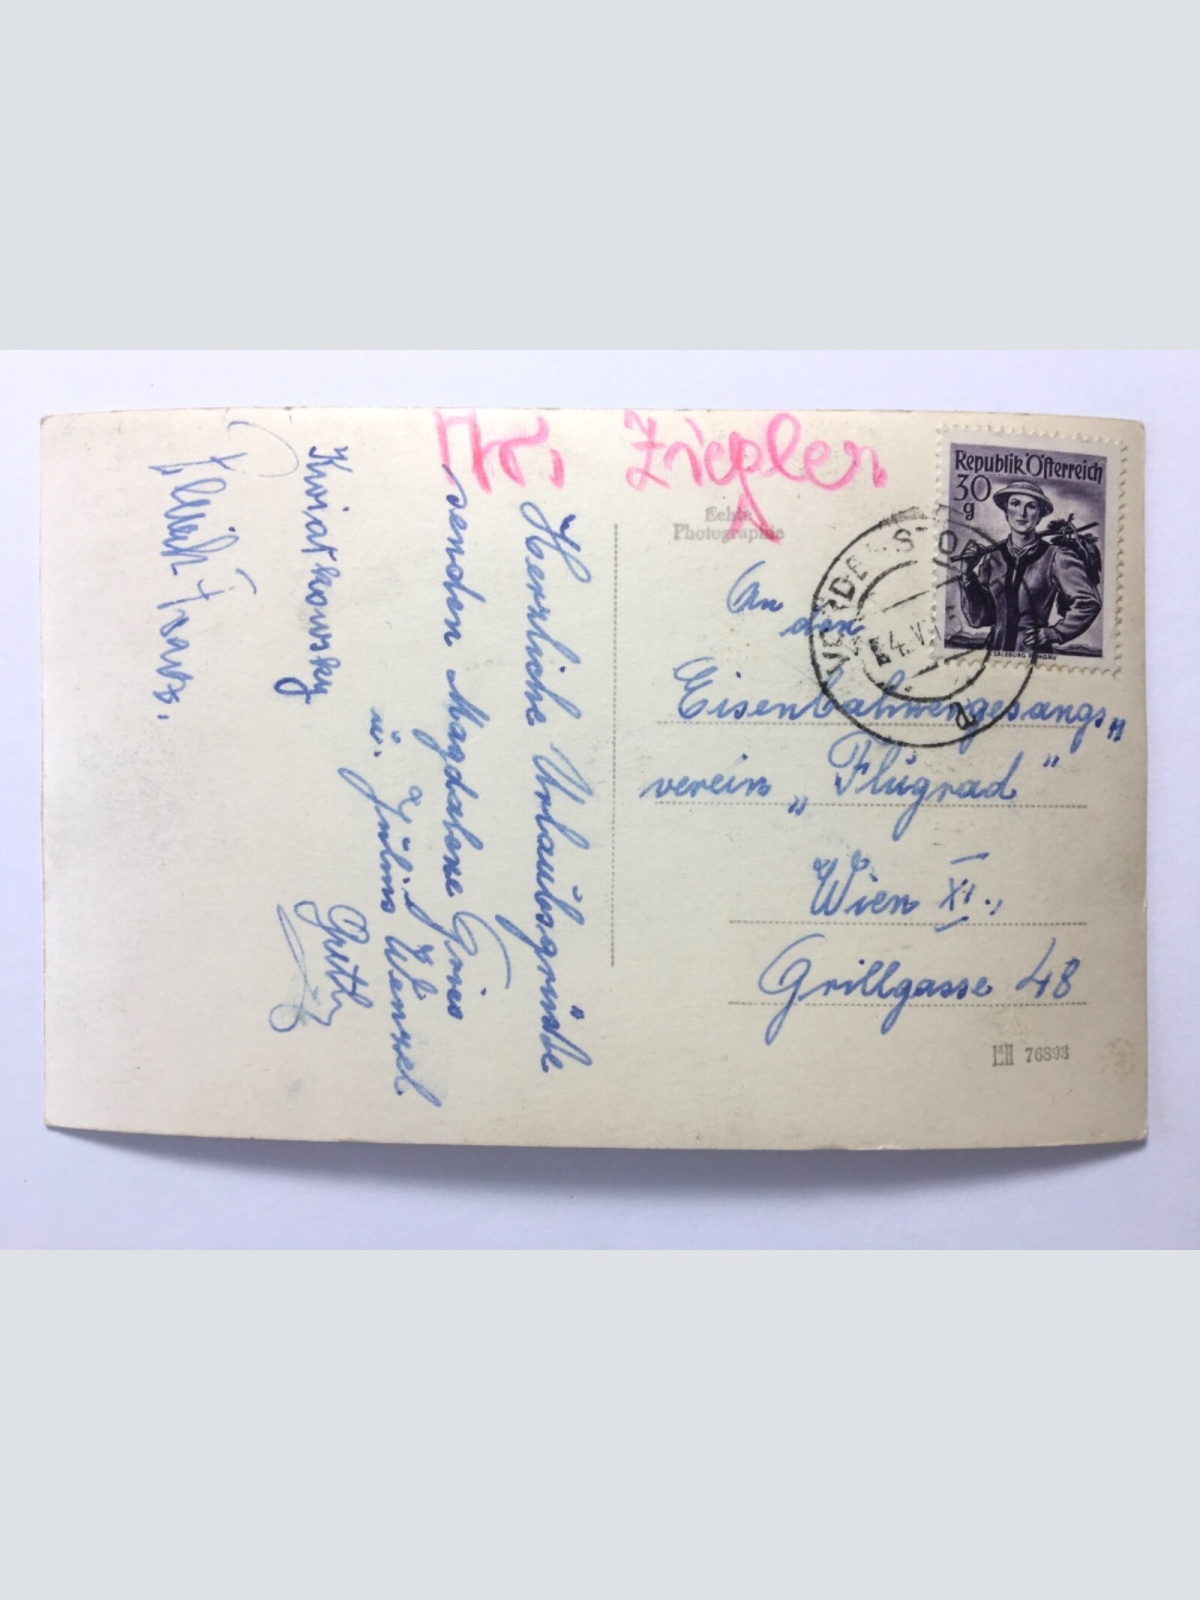 Ziegler
Herzliche Urlaubsgrüße
senden Magdalena Gries
u. Julius Wenzel
Greth
Kwiatkowsky
Franz.
Echte
Photographie
Republik Österreich
30
g
SALZBURG PONGAU
An
den
Eisenbahnergesangs„
verein „Flugrad"
Wien XI.,
Grillgasse 48
76893